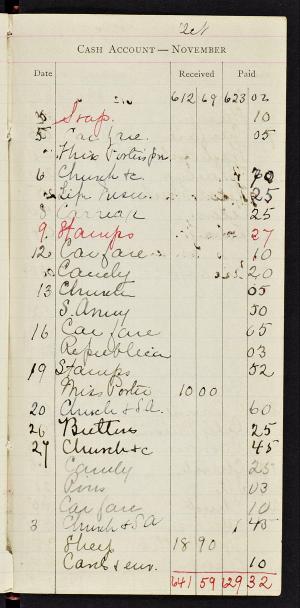 CASH ACCOUNT — NOVEMBER
Date Received Paid
612 69 623 02
5 Soap. 10
5 Car fare. 05
6 Church &c 70
25
8 Carriage 25
9 Stamps 27
12 Car fare 10
Candy 20
13 Church 05
S. Army 50
16 Car fare 05
Republican 03
19 Stamps 52
Miss Porter 10 00
20 Church & S.A. 60
26 Buttons 25
27 Church &c 45
Candy 25
Pins 03
Car fare 10
3 Church & S A 1 45
Sheep 18 90
Cards & env. 10
641 59 629 32